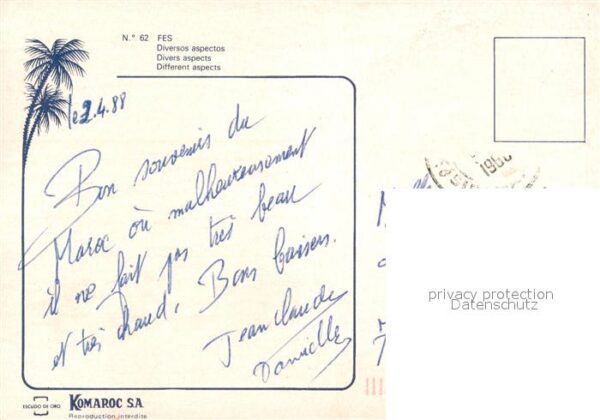 N.° 62 FES
Diversos aspectos
Divers aspects
Different aspects
le 2.4.88
Bon souvenir du
Maroc où malheureusement
il ne fait pas très beau
et très chaud. Bons baisers.
Jean Claude
Danielle
1988
privacy protection
Datenschutz
ESCUDO DE ORO
KOMAROC S.A.
Reproduction interdite